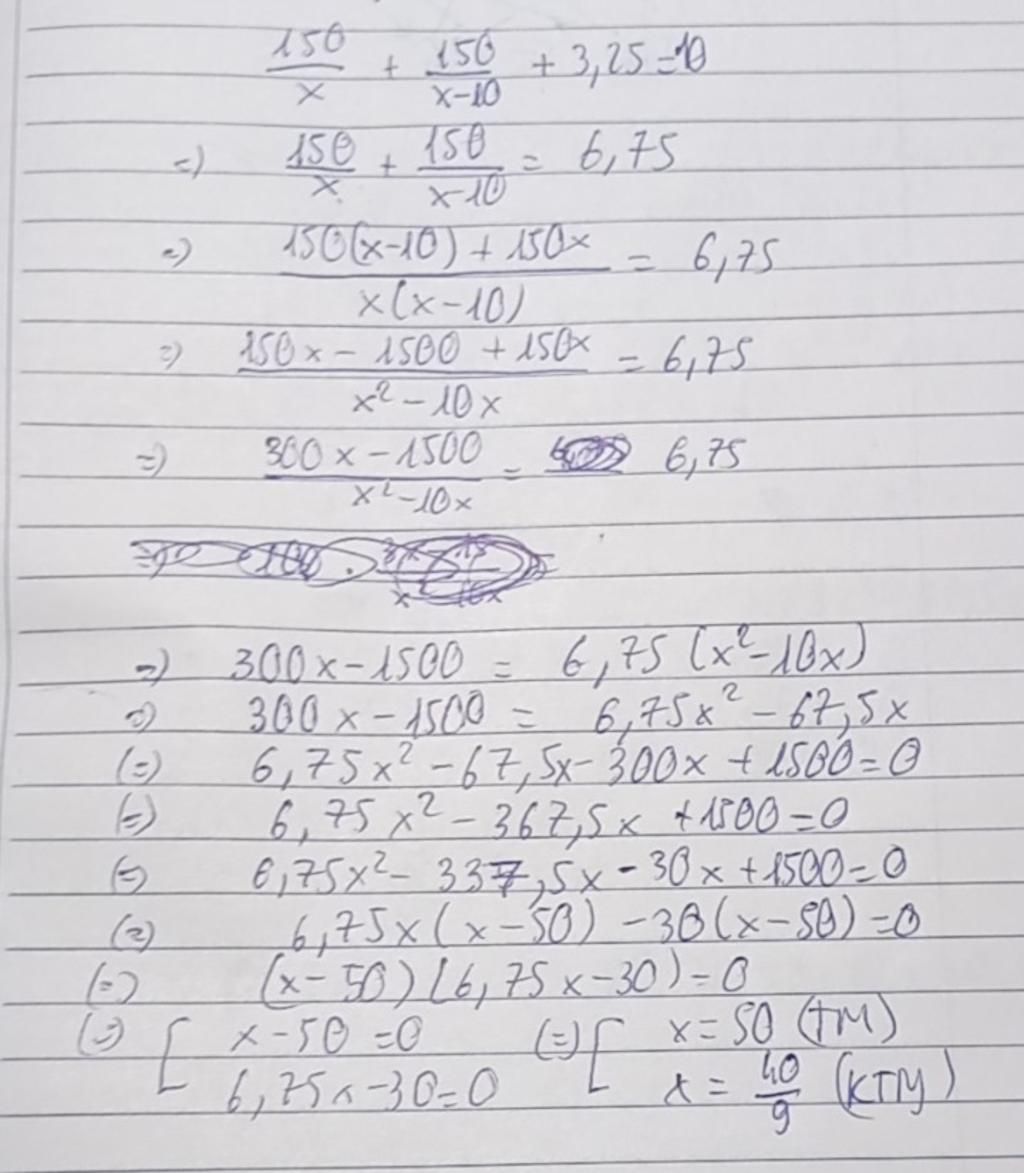 150/x + 150/(x-10) + 3,25 = 10
=) 150/x + 150/(x-10) = 6,75
=) (150(x-10) + 150x)/(x(x-10)) = 6,75
=) (150x - 1500 + 150x)/(x² - 10x) = 6,75
=) (300x - 1500)/(x² - 10x) = 6,75
=) 300x - 1500 = 6,75 (x² - 10x)
=) 300x - 1500 = 6,75x² - 67,5x
(=) 6,75x² - 67,5x - 300x + 1500 = 0
(=) 6,75x² - 367,5x + 1500 = 0
(=) 6,75x² - 337,5x - 30x + 1500 = 0
(=) 6,75x(x-50) - 30(x-50) = 0
(=) (x-50)(6,75x-30) = 0
(=) [ x-50 = 0 (=) [ x = 50 (TM)
6,75x - 30 = 0 x = 40/9 (KTM)